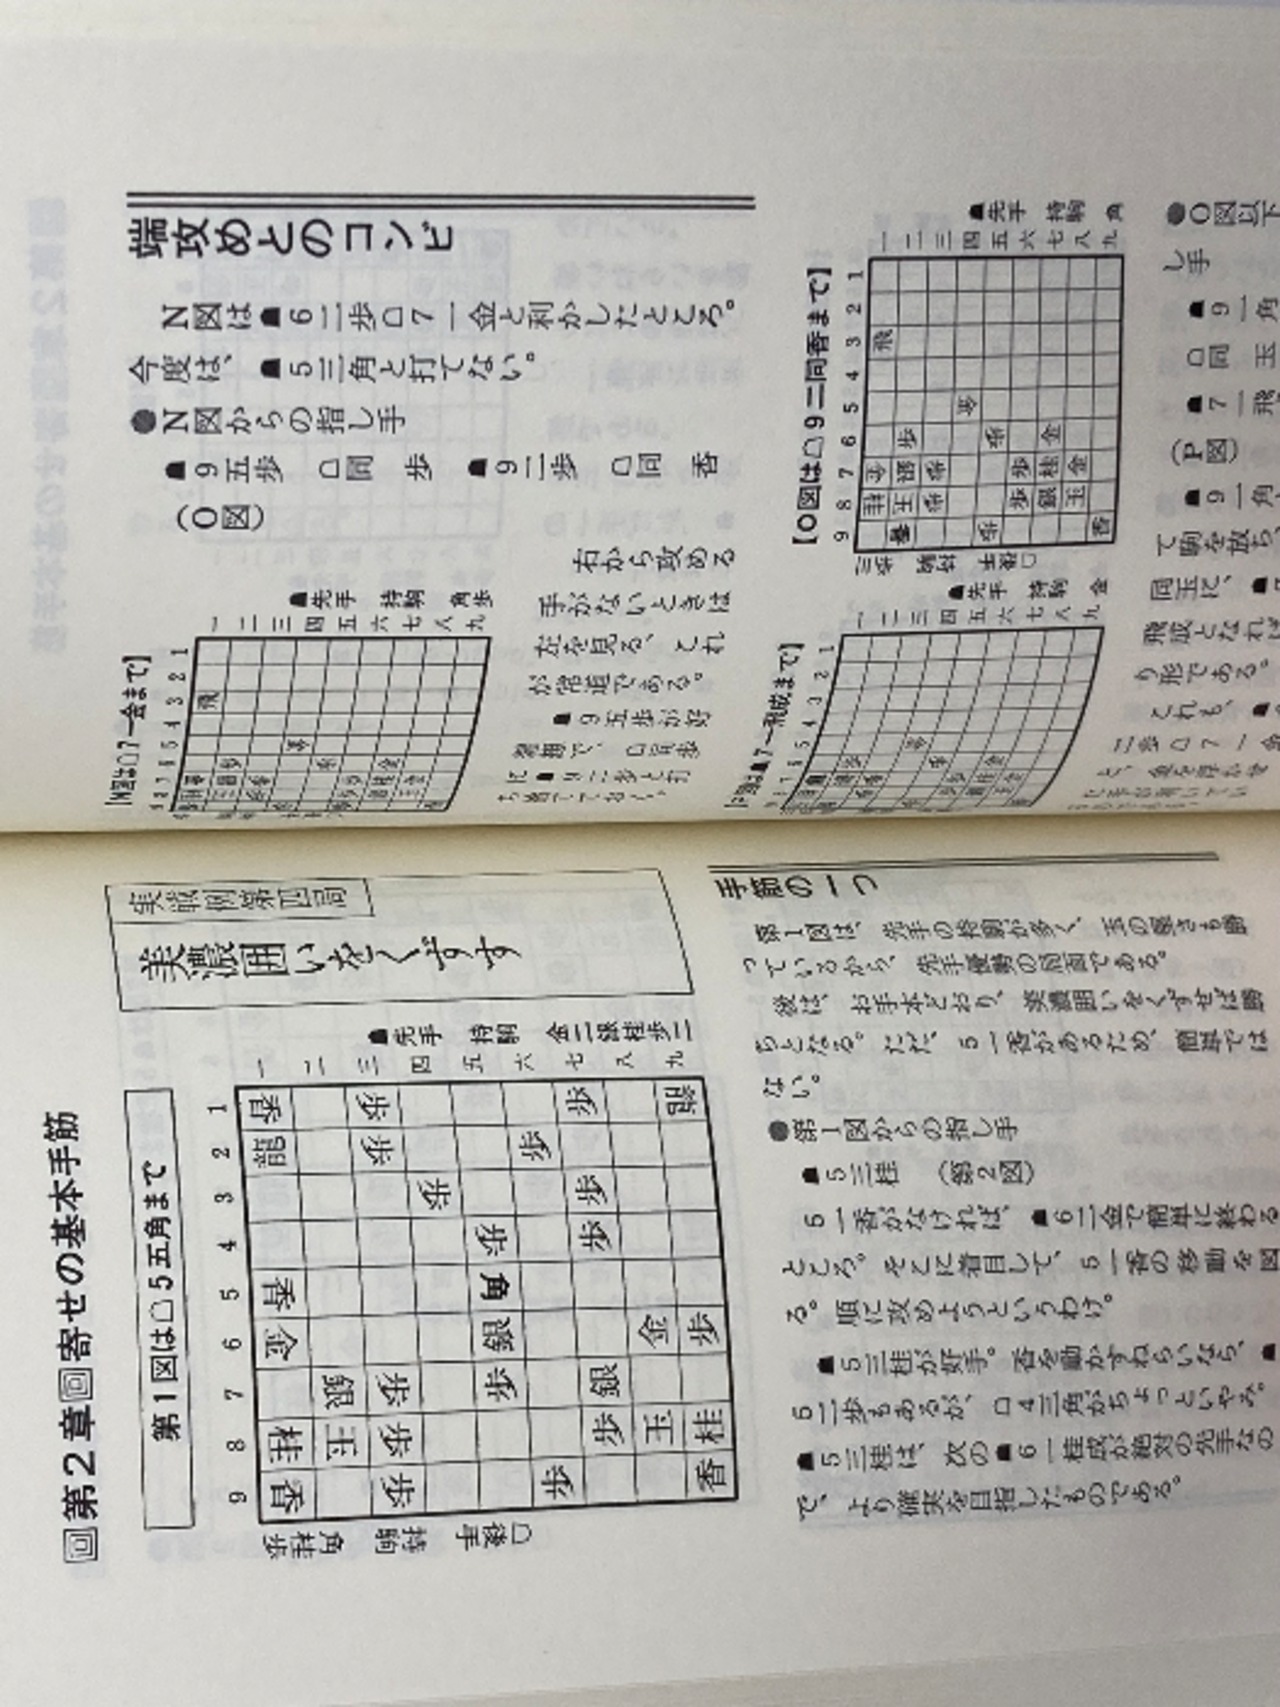 端攻めとのコンビ
N図は☗6二歩☖7一金と利かしたところ。
今度は、☗5三角と打てない。
●N図からの指し手
☗9五歩 ☖同 歩 ☗9二歩 ☖同 香
(O図)
【N図は☖7一金まで】
☗先手 持駒 角歩
1 2 3 4 5 6 7 8 9
一 二 三 四 五 六 七 八 九
右から攻める
手がないときは
左を見る、これ
が常道である。
☗9五歩が好
に☗9二歩と打
【O図は☖9二同香まで】
☗先手 持駒 角
1 2 3 4 5 6 7 8 9
一 二 三 四 五 六 七 八 九
☖後手 持駒 歩三
☗7一飛成まで】
☗先手 持駒 金
●O図以下
し手
☗9一角
☖同 玉
☗7一飛
(P図)
☗9一角、
て駒を放ち、
同玉に、☗7
飛成となれば
り形である。
これも、☗
二歩☖7一金
回第2章回寄せの基本手筋
実戦例第四局
美濃囲いをくずす
第1図は☖5五角まで
☗先手 持駒 金二銀桂歩二
9 8 7 6 5 4 3 2 1
香 桂 金 香 龍 香 一
玉 銀 二
歩 歩 歩 歩 歩 三
歩 四
歩 銀 角 歩 五
歩 歩 六
歩 銀 歩 歩 歩 七
玉 金 八
香 桂 歩 九
☖後手 持駒 角桂歩
手筋の一つ
第1図は、先手の持駒が多く、玉の堅さも勝
っているから、先手優勢の局面である。
後は、お手本どおり、美濃囲いをくずせば勝
ちとなる。ただ、5一香があるため、簡単では
ない。
●第1図からの指し手
☗5三桂 (第2図)
5一香がなければ、☗6二金で簡単に終わる
ところ。そこに着目して、5一香の移動を図
る。順に攻めようというわけ。
☗5三桂が好手。香を動かすねらいなら、☗
5二歩もあるが、☖4三角がちょっといやみ。
☗5三桂は、次の☗6一桂成が絶対の先手なの
で、より確実を目指したものである。